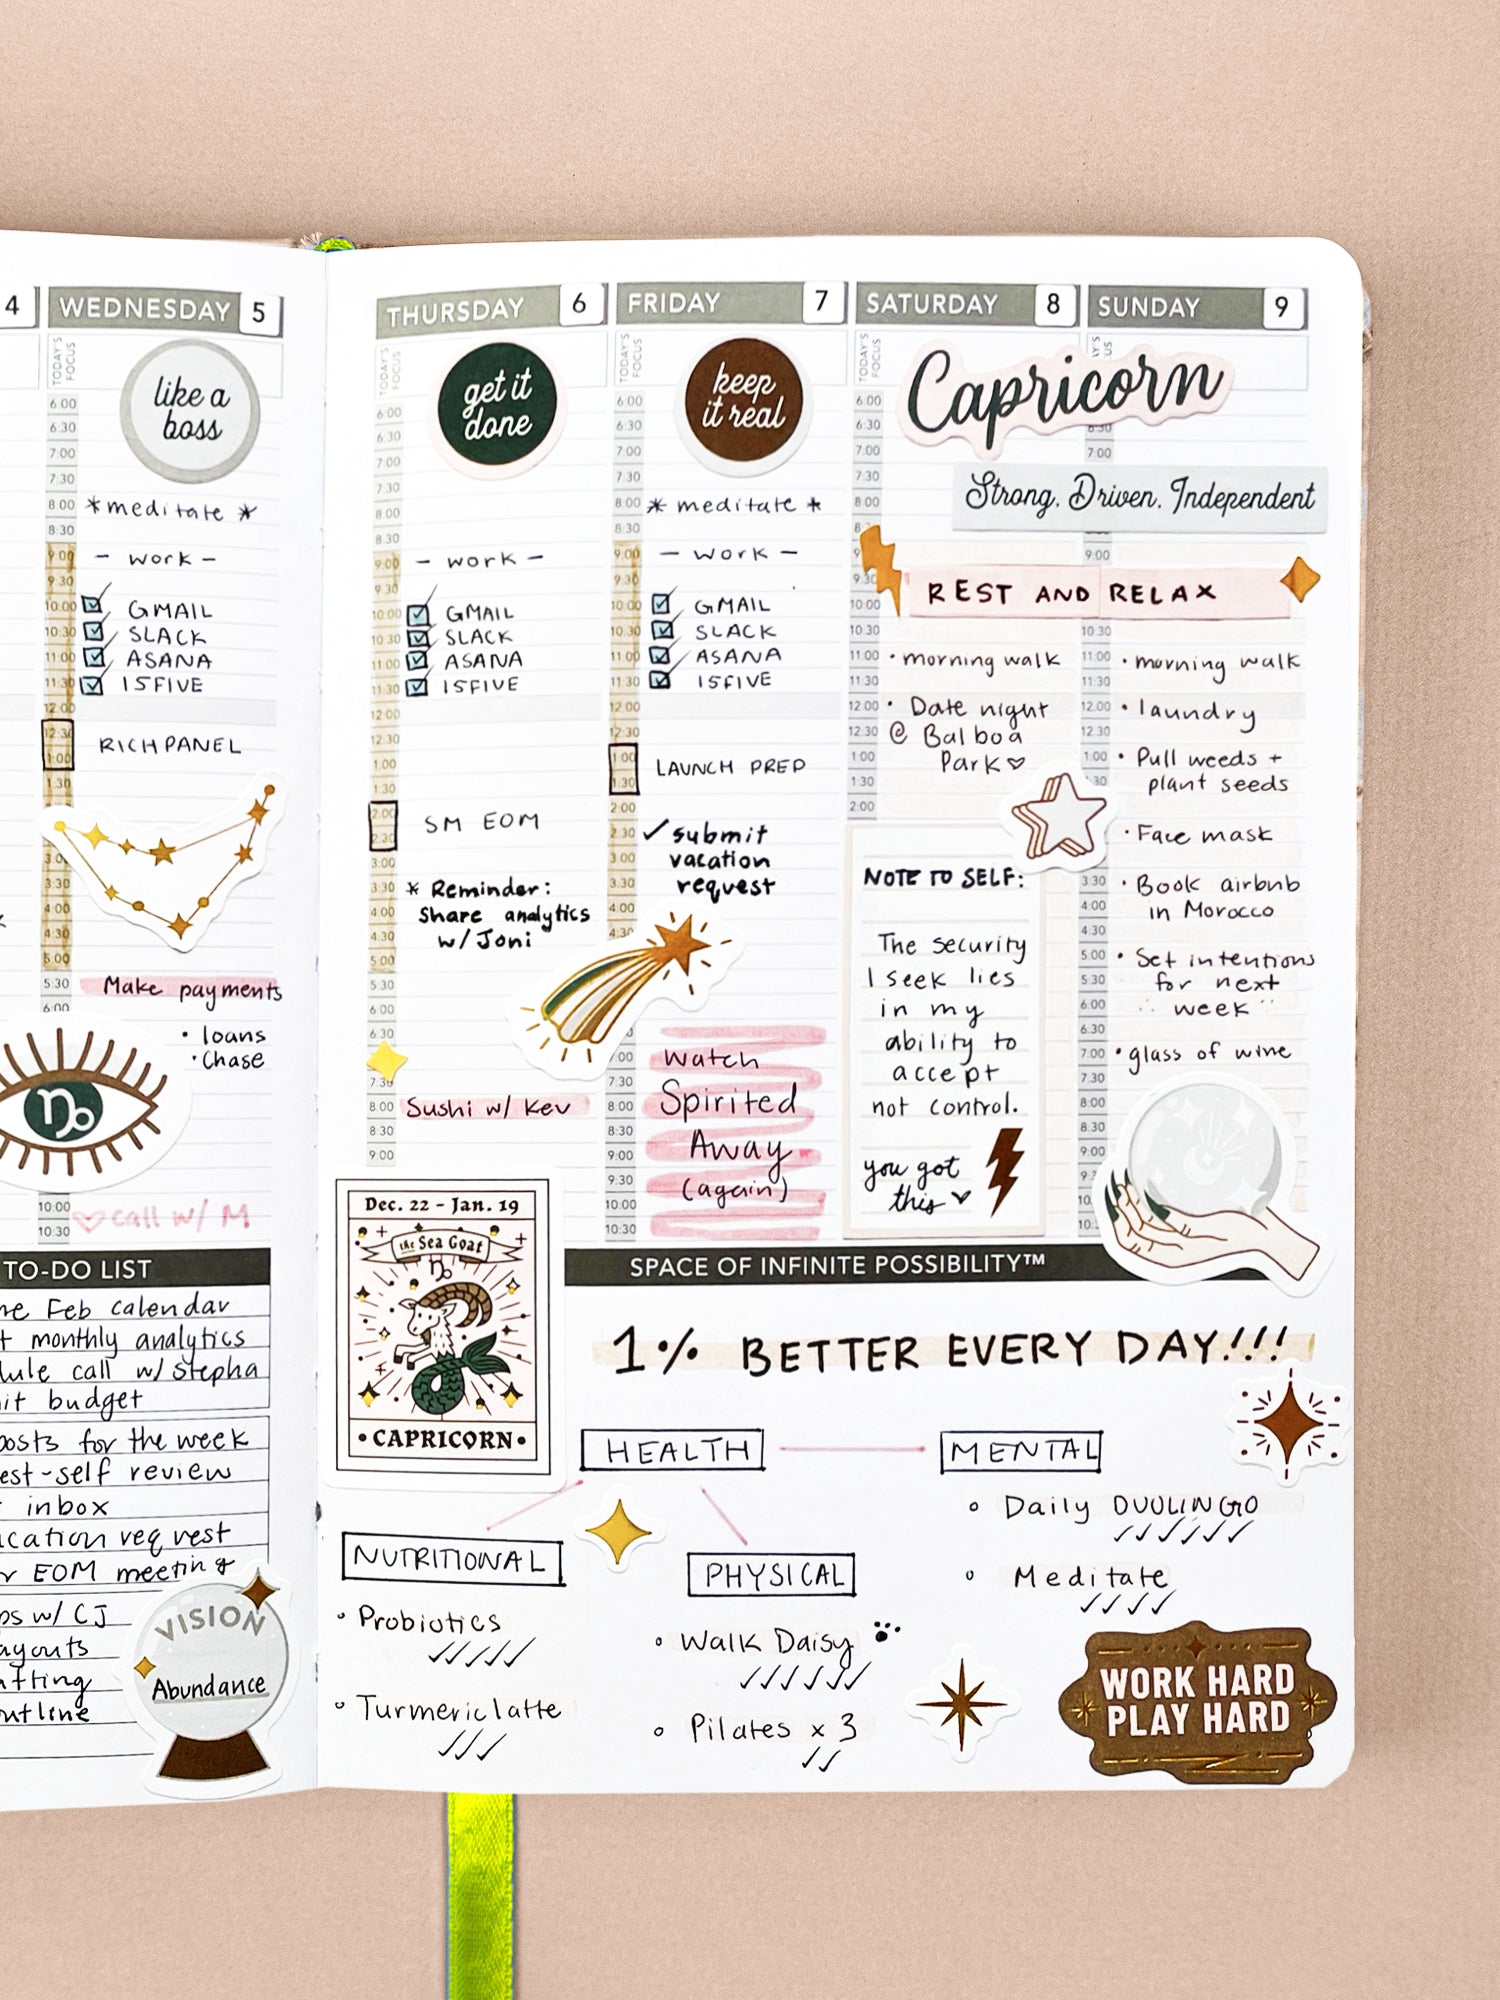 4
WEDNESDAY 5
TODAY'S FOCUS
like a
boss
6:00
6:30
7:00
7:30
8:00 *meditate*
8:30
9:00 - work -
9:30
10:00 GMAIL
10:30 SLACK
11:00 ASANA
11:30 15FIVE
12:00
12:30 RICHPANEL
1:00
1:30
3:30
4:00
4:30
5:00
5:30 Make payments
6:00
• loans
• Chase
10:00 call w/ M
10:30
TO-DO LIST
Feb calendar
monthly analytics
call w/ Stepha
budget
posts for the week
review
inbox
request
EOM meeting
w/ CJ
VISION
Abundance
THURSDAY 6
TODAY'S FOCUS
get it
done
6:00
6:30
7:00
7:30
8:00
8:30
9:00 - work -
9:30
10:00 GMAIL
10:30 SLACK
11:00 ASANA
11:30 15FIVE
12:00
12:30
1:00
1:30
2:00 SM EOM
2:30
3:00
3:30 * Reminder:
4:00 Share analytics
4:30 w/ Joni
5:00
5:30
6:00
6:30
7:30
8:00 Sushi w/ Kev
8:30
9:00
Dec. 22 - Jan. 19
the Sea Goat
• CAPRICORN •
FRIDAY 7
TODAY'S FOCUS
keep
it real
6:00
6:30
7:00
7:30
8:00 * meditate *
8:30
9:00 - work -
9:30
10:00 GMAIL
10:30 SLACK
11:00 ASANA
11:30 15FIVE
12:00
12:30
1:00 LAUNCH PREP
1:30
2:00
2:30 ✓ submit
3:00 vacation
3:30 request
4:00
4:30
7:00 Watch
7:30
8:00 Spirited
8:30
9:00 Away
9:30 (again)
10:00
10:30
SATURDAY 8
TODAY'S FOCUS
SUNDAY 9
Capricorn
Strong. Driven. Independent
REST AND RELAX
6:00
6:30
7:00
7:30
8:00
9:30
10:00
10:30
11:00 • morning walk
11:30
12:00 • Date night
12:30 @ Balboa
1:00 Park
1:30
2:00
NOTE TO SELF:
The security
I seek lies
in my
ability to
accept
not control.
you got
this
6:30
7:00
9:00
10:30
11:00 • morning walk
11:30
12:00 • laundry
12:30
1:00 • Pull weeds +
plant seeds
• Face mask
3:30 • Book airbnb
4:00 in Morocco
4:30
5:00 • Set intentions
5:30 for next
6:00 week
6:30
7:00 • glass of wine
7:30
8:00
8:30
9:00
SPACE OF INFINITE POSSIBILITY™
1% BETTER EVERY DAY!!!
HEALTH
MENTAL
• Daily DUOLINGO
✓✓✓✓✓✓
• Meditate
✓✓✓✓
NUTRITIONAL
• Probiotics
✓✓✓✓✓
• Turmeric latte
✓✓✓
PHYSICAL
• Walk Daisy
✓✓✓✓✓✓
• Pilates x 3
✓✓
WORK HARD
PLAY HARD